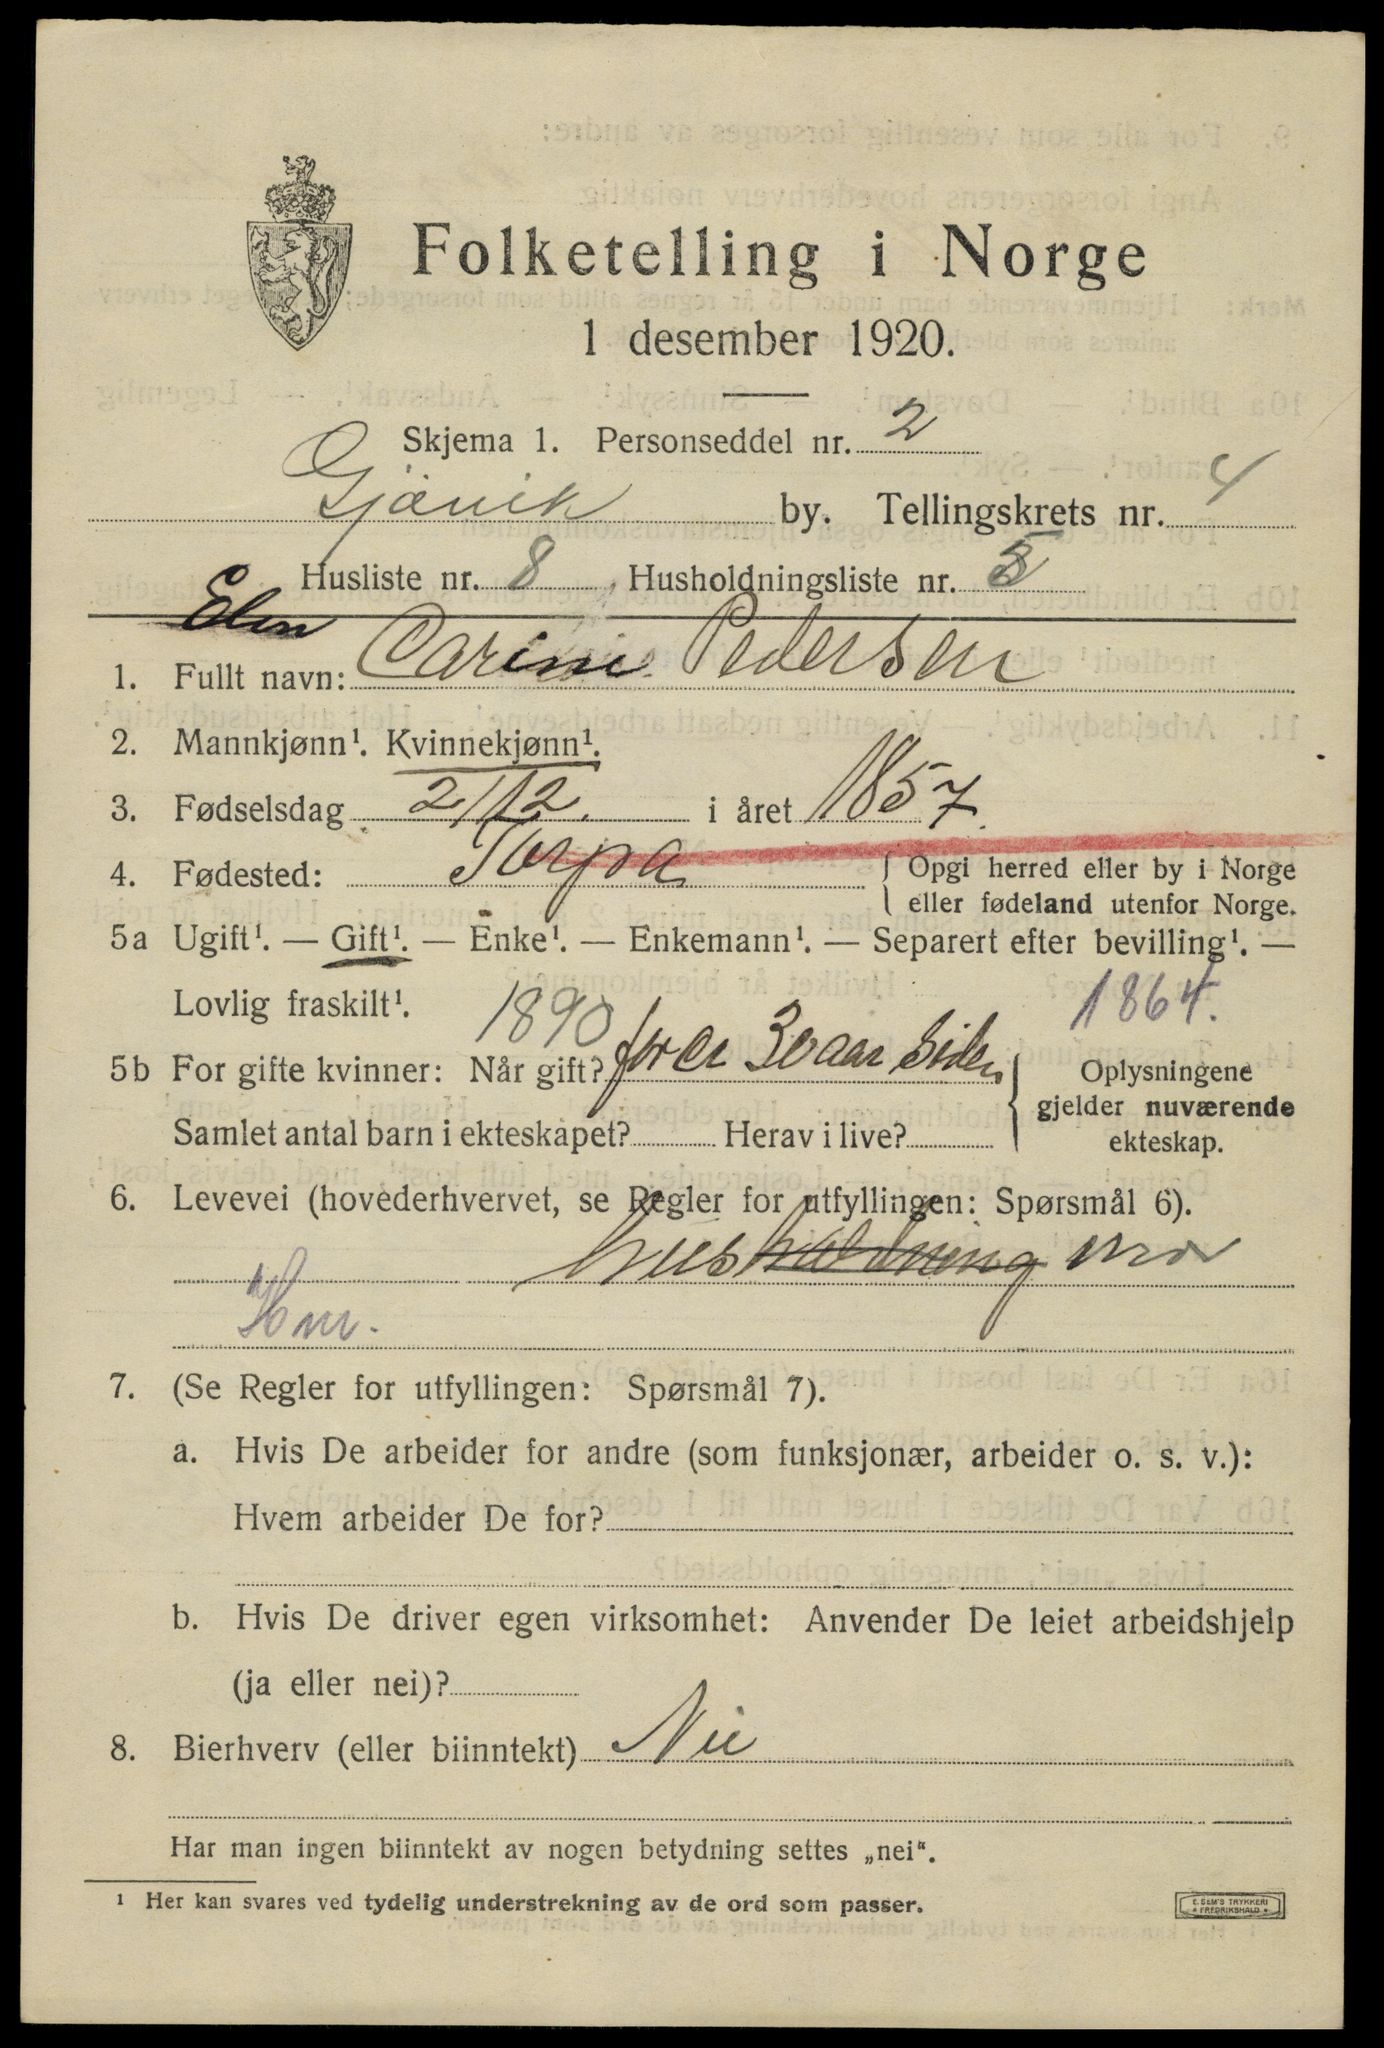 Folketelling i Norge
1 desember 1920.
Skjema 1. Personseddel nr. 2
Gjøvik by. Tellingskrets nr. 4
Husliste nr. 8 Husholdningsliste nr.
Elen
1. Fullt navn: Carine Pedersen
2. Mannkjønn¹. Kvinnekjønn¹.
3. Fødselsdag 2/12. i året 1857.
4. Fødested: Torpa { Opgi herred eller by i Norge
eller fødeland utenfor Norge.
5a Ugift¹. — Gift¹. — Enke¹. — Enkemann¹. — Separert efter bevilling¹. —
Lovlig fraskilt¹. 1890 1864.
5b For gifte kvinner: Når gift? for er 30 aar siden { Oplysningene
gjelder nuværende
Samlet antal barn i ekteskapet? Herav i live? ekteskap.
6. Levevei (hovederhvervet, se Regler for utfyllingen: Spørsmål 6).
husholdning mor
Hm.
7. (Se Regler for utfyllingen: Spørsmål 7).
a. Hvis De arbeider for andre (som funksjonær, arbeider o. s. v.):
Hvem arbeider De for?
b. Hvis De driver egen virksomhet: Anvender De leiet arbeidshjelp
(ja eller nei)?
8. Bierhverv (eller biinntekt) Nei
Har man ingen biinntekt av nogen betydning settes „nei“.
¹ Her kan svares ved tydelig understrekning av de ord som passer.
E. SEM'S TRYKKERI
FREDRIKSHALD